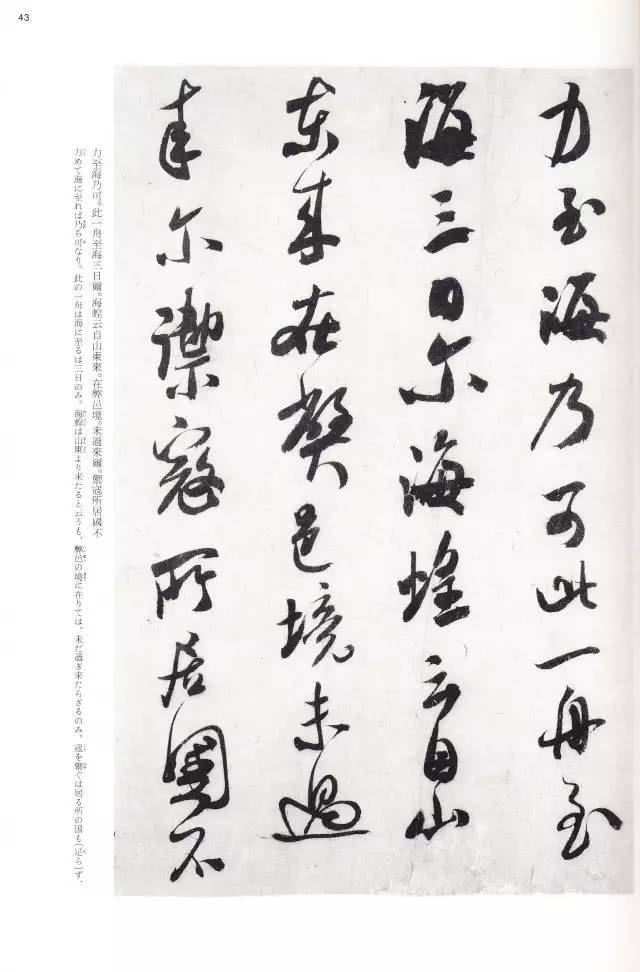 43
力至海乃可此一舟至
海三日尔海蝗云自山
東来在弊邑境未過
来尔禦寇所居國不
力至海乃可。此一舟至海三日爾。海蝗云自山東來。在弊邑境。未過來爾。禦寇所居國不
力めて海に至れば乃ち可なり。此の一舟は海に至るは三日のみ。海蝗は山東より来たると云うも、弊邑の境に在りては、未だ過ぎ来たらざるのみ。寇を禦ぐは居る所の国も(足ら)ず、